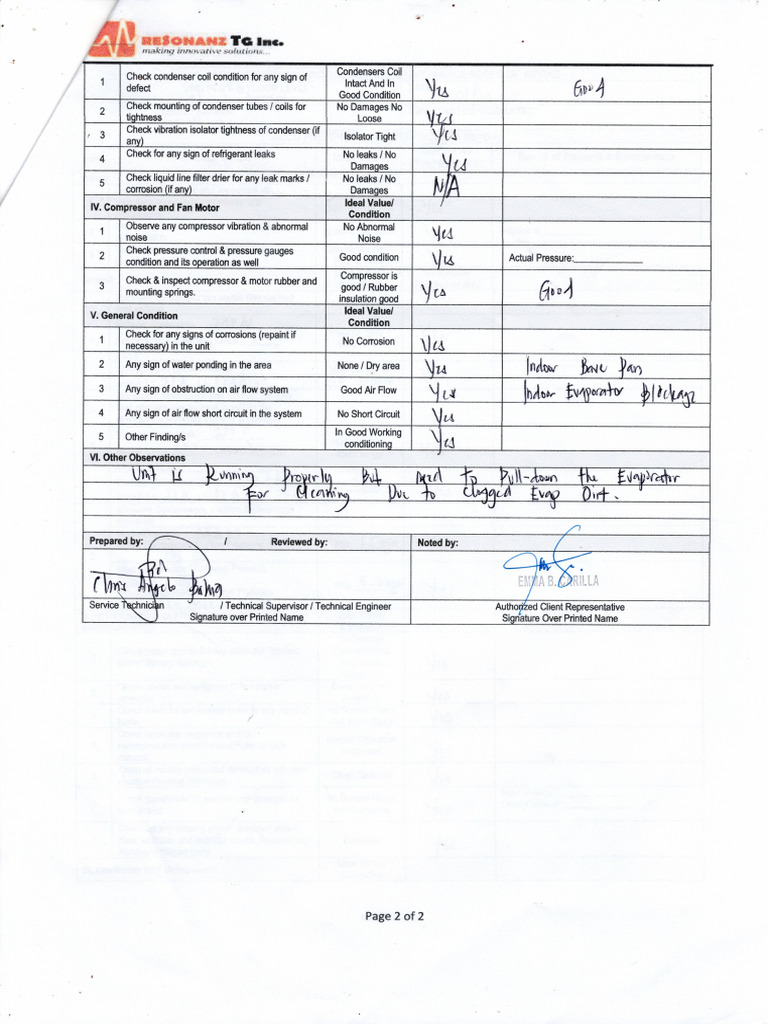 RESONANZ TG Inc.
making innovative solutions...
1 Check condenser coil condition for any sign of defect Condensers Coil Intact And In Good Condition Yes Good
2 Check mounting of condenser tubes / coils for tightness No Damages No Loose Yes
3 Check vibration isolator tightness of condenser (if any) Isolator Tight Yes
4 Check for any sign of refrigerant leaks No leaks / No Damages Yes
5 Check liquid line filter drier for any leak marks / corrosion (if any) No leaks / No Damages N/A
IV. Compressor and Fan Motor Ideal Value/ Condition
1 Observe any compressor vibration & abnormal noise No Abnormal Noise Yes
2 Check pressure control & pressure gauges condition and its operation as well Good condition Yes Actual Pressure:______________
3 Check & inspect compressor & motor rubber and mounting springs. Compressor is good / Rubber insulation good Yes Good
V. General Condition Ideal Value/ Condition
1 Check for any signs of corrosions (repaint if necessary) in the unit No Corrosion Yes
2 Any sign of water ponding in the area None / Dry area Yes Indoor Pan
3 Any sign of obstruction on air flow system Good Air Flow Yes Indoor Evaporator Blockage
4 Any sign of air flow short circuit in the system No Short Circuit Yes
5 Other Finding/s In Good Working conditioning Yes
VI. Other Observations
Unit is Running Properly But need to Pull-down the Evaporator
For Cleaning Due to clogged Evap Dirt.
Prepared by: / Reviewed by: Noted by:
Chris Angelo
EMMA B. CARILLA
Service Technician / Technical Supervisor / Technical Engineer Authorized Client Representative
Signature over Printed Name Signature Over Printed Name
Page 2 of 2